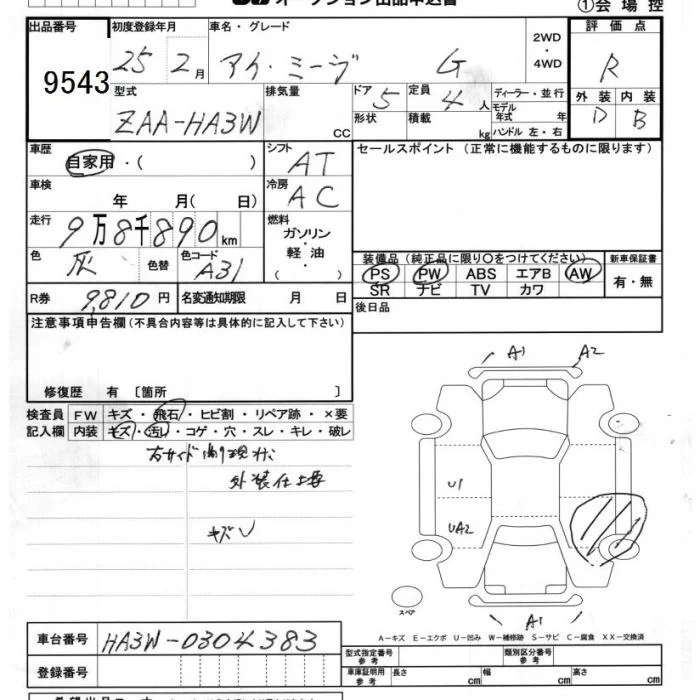 オークション出品申込書
①会場控
出品番号 9543
初度登録年月 25 2月
車名・グレード アイ・ミーブ G
2WD・4WD
評価点 R
外装 D 内装 B
型式 ZAA-HA3W
排気量 CC
ドア 5 形状
定員 4人 積載 kg
ディーラー・並行
モデル年式 年
ハンドル 左・右
車歴 自家用・( )
シフト AT
セールスポイント (正常に機能するものに限ります)
車検 年 月( 日)
冷房 AC
走行 9万8千890km
燃料 ガソリン・軽油・( )
色 灰 色替 色コード A31
装備品 (純正品に限り○をつけてください)
新車保証書
PS PW ABS エアB AW
SR ナビ TV カワ
有・無
R券 9,810円 名変通知期限 月 日
後日品
注意事項申告欄 (不具合内容等は具体的に記入して下さい)
修復歴 有 〔箇所 〕
検査員 FW キズ・飛石・ヒビ割・リペア跡・×要
記入欄 内装 キズ・汚れ・コゲ・穴・スレ・キレ・破レ
外装仕上要
キズ
A1 A2
U1
UA2
スペア
A1
A-キズ E-エクボ U-凹み W-補修跡 S-サビ C-腐食 XX-交換済
車台番号 HA3W-0304383
登録番号
型式指定番号 参考 類別区分番号 参考
車庫証明用 参考 長さ cm 幅 cm 高さ cm